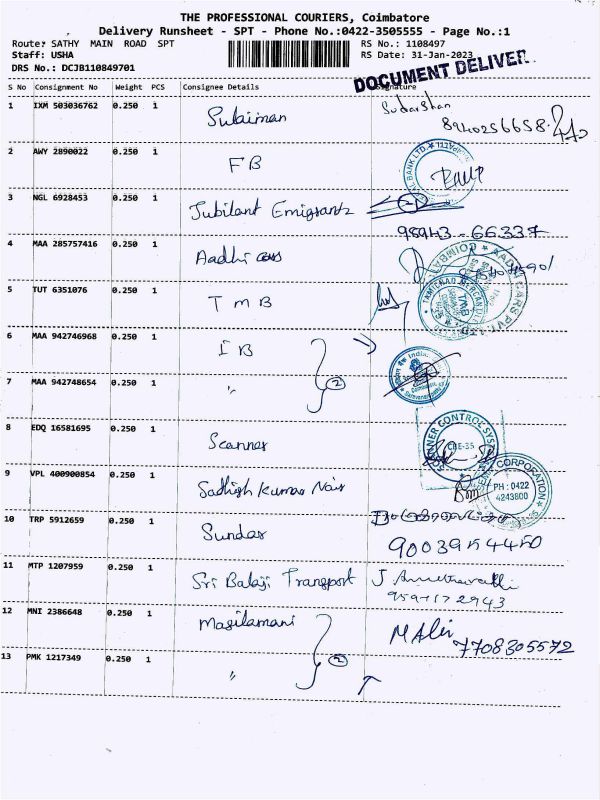 THE PROFESSIONAL COURIERS, Coimbatore
Delivery Runsheet - SPT - Phone No.:0422-3505555 - Page No.:1
Route: SATHY MAIN ROAD SPT RS No.: 1108497
Staff: USHA RS Date: 31-Jan-2023
DRS No.: DCJB110849701
DOCUMENT DELIVER
S No Consignment No Weight PCS Consignee Details Signature
1 IXM 503036762 0.250 1 Sulaiman Sudarshan
8940256658
2 AWY 2890022 0.250 1 FB
3 NGL 6928453 0.250 1 Jubilant Emigrants
98943-66337
4 MAA 285757416 0.250 1 Aadhi cars
5 TUT 6351076 0.250 1 TMB
6 MAA 942746968 0.250 1 IB
7 MAA 942748654 0.250 1 " 2
8 EDQ 16581695 0.250 1 Scanner
SCANNER CONTROL SYSTEMS
CBE-35
9 VPL 400900854 0.250 1 Sadhish Kumar Nair
CORPORATION
PH : 0422
4243800
10 TRP 5912659 0.250 1 Sundar
9003954450
11 MTP 1207959 0.250 1 Sri Balaji Transport
9597172943
12 MNI 2386648 0.250 1 Masilamani
7708305572
13 PMK 1217349 0.250 1 " 2